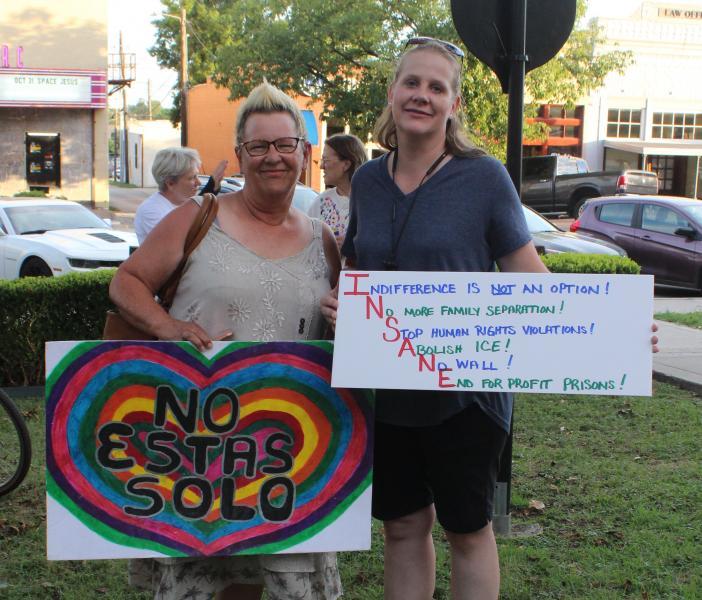 LAW OFF
OCT 31 SPACE JESUS
NO
ESTAS
SOLO
INDIFFERENCE IS NOT AN OPTION!
NO MORE FAMILY SEPARATION!
STOP HUMAN RIGHTS VIOLATIONS!
ABOLISH ICE!
NO WALL!
END FOR PROFIT PRISONS!